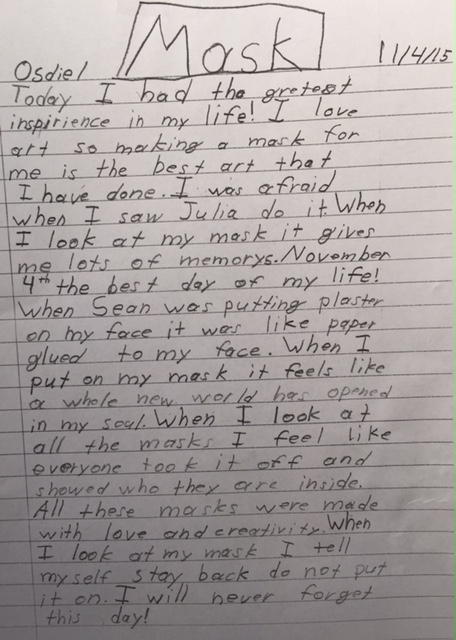 Mask
11/4/15
Osdiel
Today I had the gretest
inspirience in my life! I love
art so making a mask for
me is the best art that
I have done. I was afraid
when I saw Julia do it. When
I look at my mask it gives
me lots of memorys. November
4th the best day of my life!
When Sean was putting plaster
on my face it was like paper
glued to my face. When I
put on my mask it feels like
a whole new world has opened
in my soul. When I look at
all the masks I feel like
everyone took it off and
showed who they are inside.
All these masks were made
with love and creativity. When
I look at my mask I tell
myself stay back do not put
it on. I will never forget
this day!